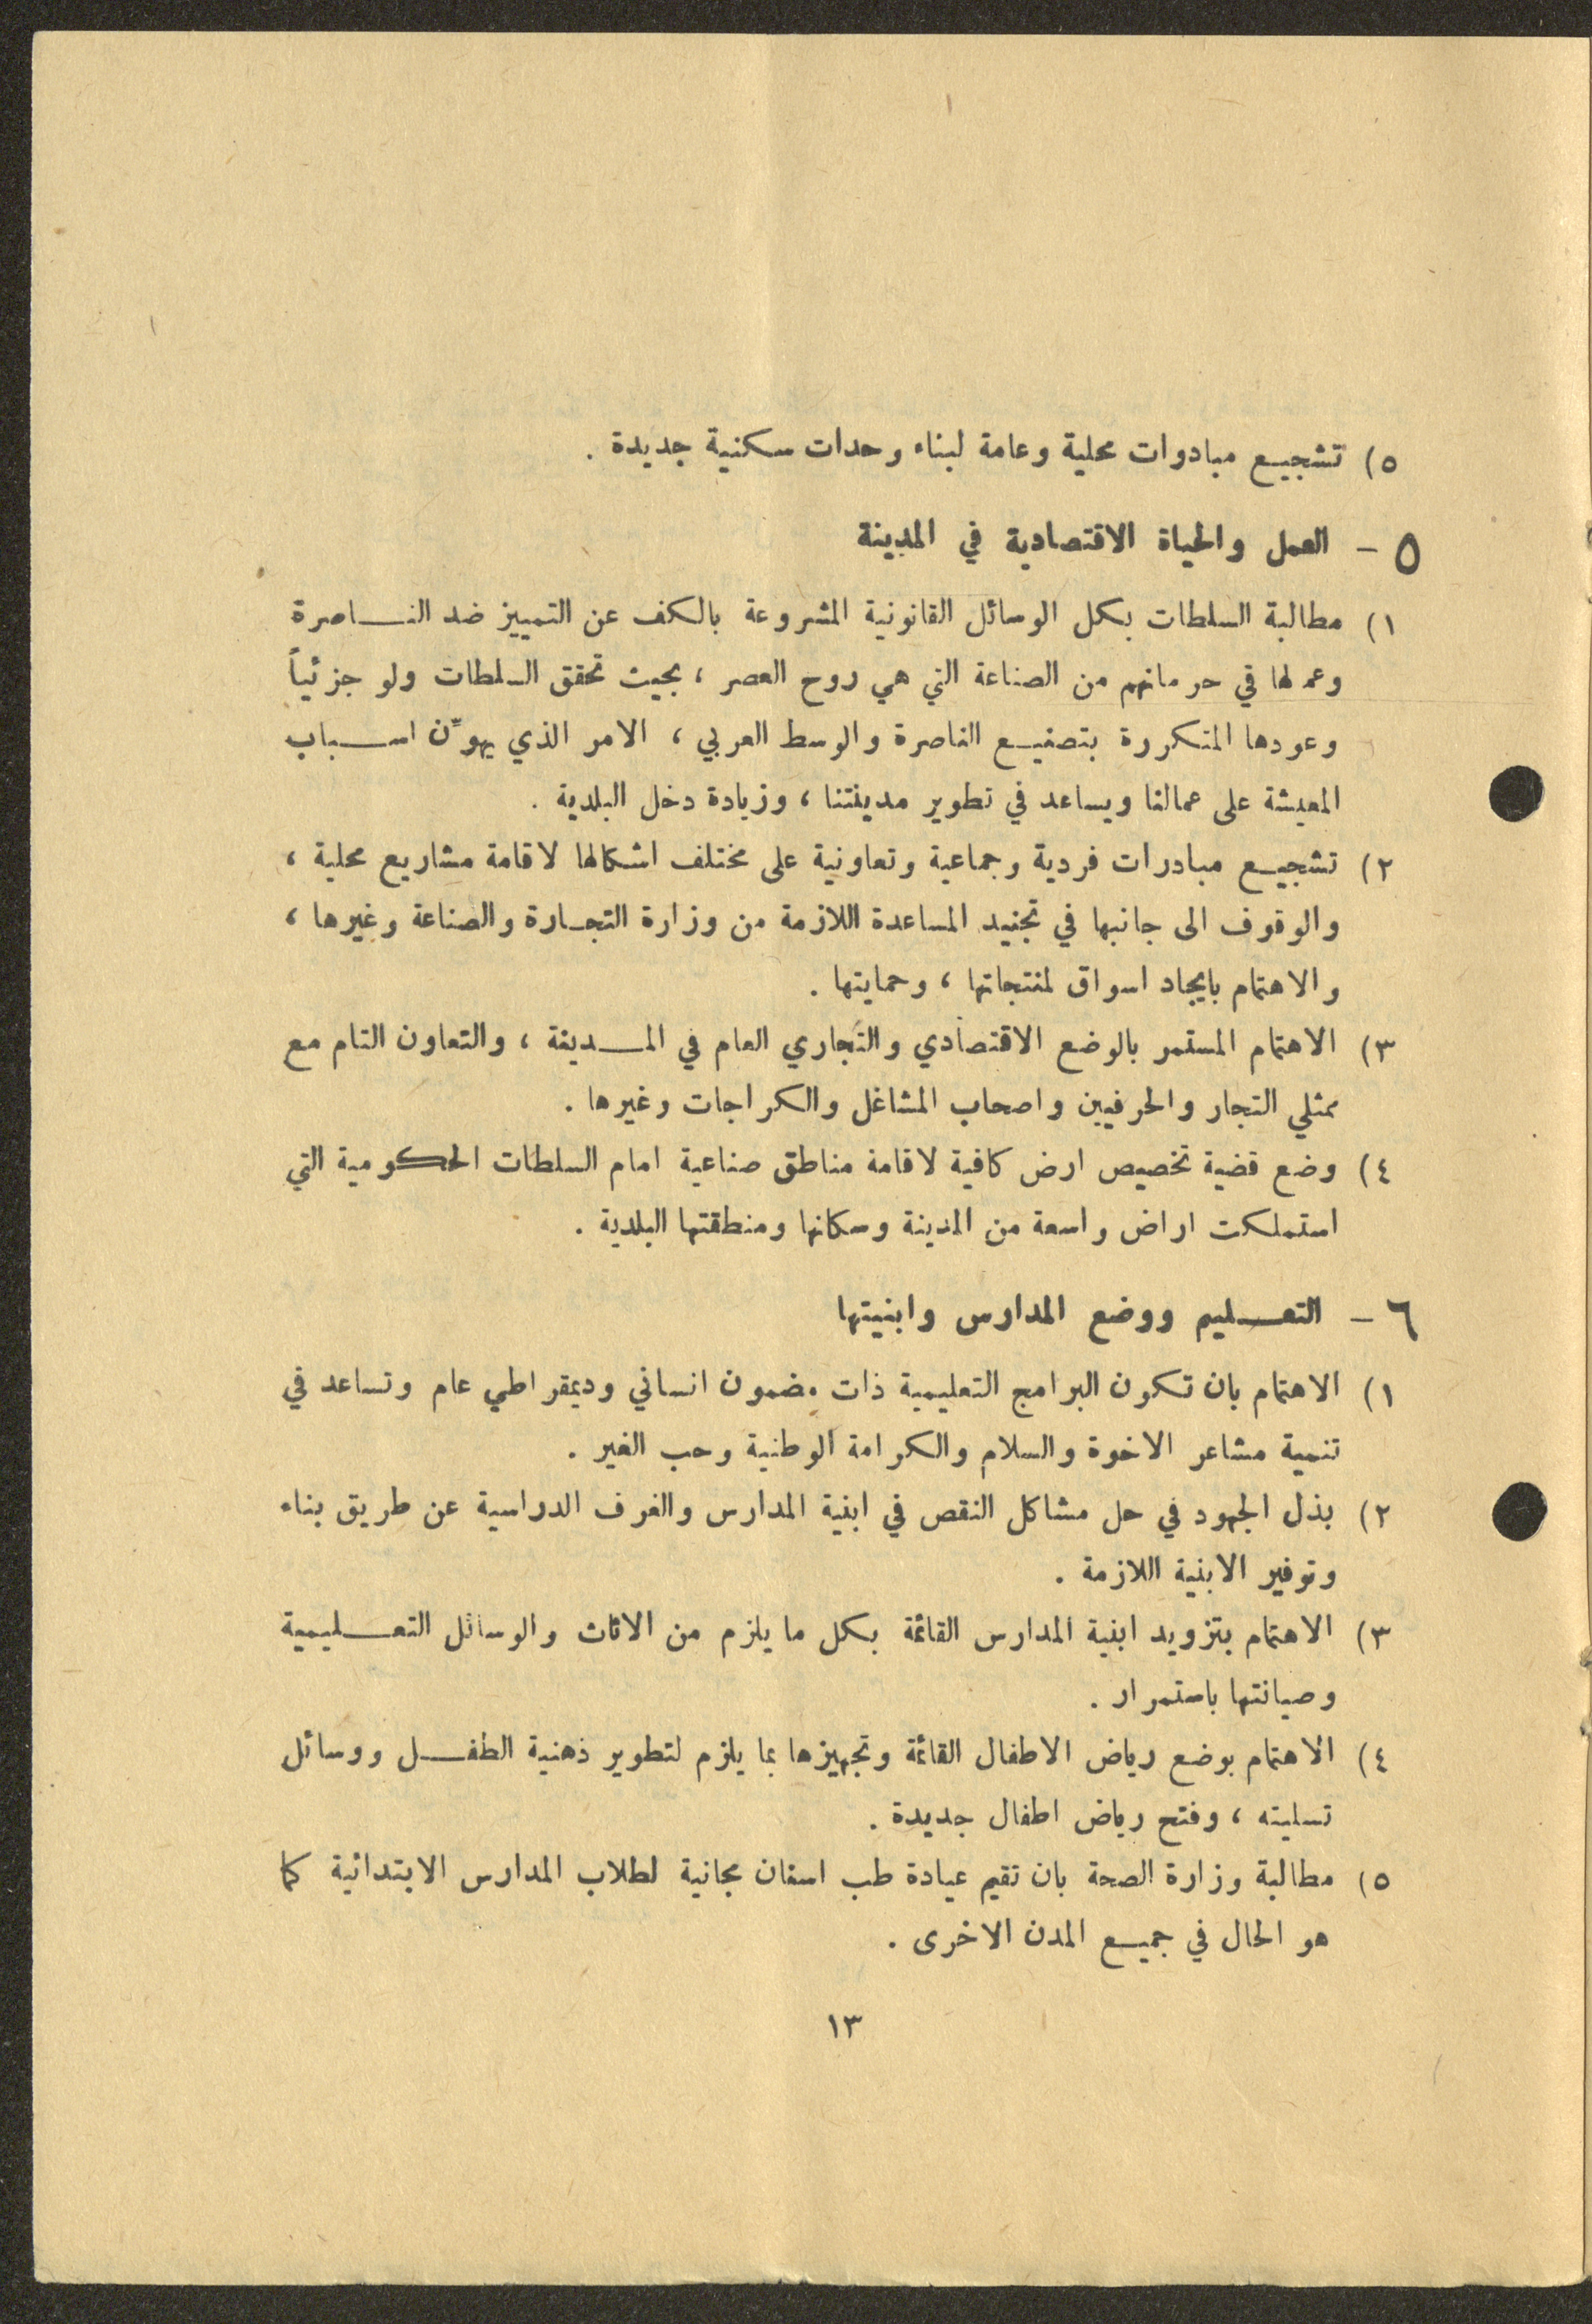 ٥) تشجيع مبادوات محلية وعامة لبناء وحدات سكنية جديدة .
٥ - العمل والحياة الاقتصادية في المدينة
١) مطالبة السلطات بكل الوسائل القانونية المشروعة بالكف عن التمييز ضد الناصرة
وعمالها في حرمانهم من الصناعة التي هي روح العصر ، بحيث تحقق السلطات ولو جزئياً
وعودها المتكررة بتصنيع الناصرة والوسط العربي ، الامر الذي يهوّن اسباب
المعيشة على عمالنا ويساعد في تطوير مدينتنا ، وزيادة دخل البلدية .
٢) تشجيع مبادرات فردية وجماعية وتعاونية على مختلف اشكالها لاقامة مشاريع محلية ،
والوقوف الى جانبها في تجنيد المساعدة اللازمة من وزارة التجارة والصناعة وغيرها ،
والاهتمام بايجاد اسواق لمنتجاتها ، وحمايتها .
٣) الاهتمام المستمر بالوضع الاقتصادي والتجاري العام في المدينة ، والتعاون التام مع
ممثلي التجار والحرفيين واصحاب المشاغل والكراجات وغيرها .
٤) وضع قضية تخصيص ارض كافية لاقامة مناطق صناعية امام السلطات الحكومية التي
استملكت اراض واسعة من المدينة وسكانها ومنطقتها البلدية .
٦ - التعليم ووضع المدارس وابنيتها
١) الاهتمام بان تكون البرامج التعليمية ذات مضمون انساني وديمقراطي عام وتساعد في
تنمية مشاعر الاخوة والسلام والكرامة الوطنية وحب الغير .
٢) بذل الجهود في حل مشاكل النقص في ابنية المدارس والغرف الدراسية عن طريق بناء
وتوفير الابنية اللازمة .
٣) الاهتمام بتزويد ابنية المدارس القائمة بكل ما يلزم من الاثاث والوسائل التعليمية
وصيانتها باستمرار .
٤) الاهتمام بوضع رياض الاطفال القائمة وتجهيزها بما يلزم لتطوير ذهنية الطفل ووسائل
تسليته ، وفتح رياض اطفال جديدة .
٥) مطالبة وزارة الصحة بان تقيم عيادة طب اسنان مجانية لطلاب المدارس الابتدائية كما
هو الحال في جميع المدن الاخرى .
١٣